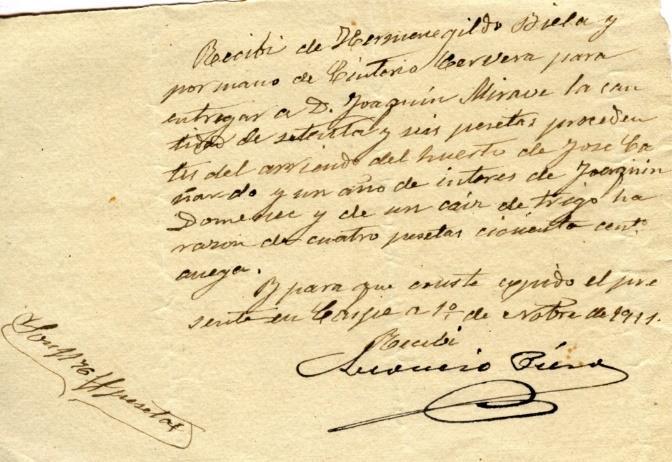 Recibi de Hermenegildo Biela y
por mano de Cintorio Cervera para
entregar a D. Joaquin Mirave la can
tidad de setenta y seis pesetas proceden
tes del arriendo del huerto de José Ca
ñardo y un año de interes de Joaquin
Domenec y de un caiz de trigo ha
razon de cuatro pesetas cicuenta cent.
anega.
Y para que conste espido el pre
sente en Caspe a 1º de Nobre de 1911.
Recibi
Son 76 pesetas